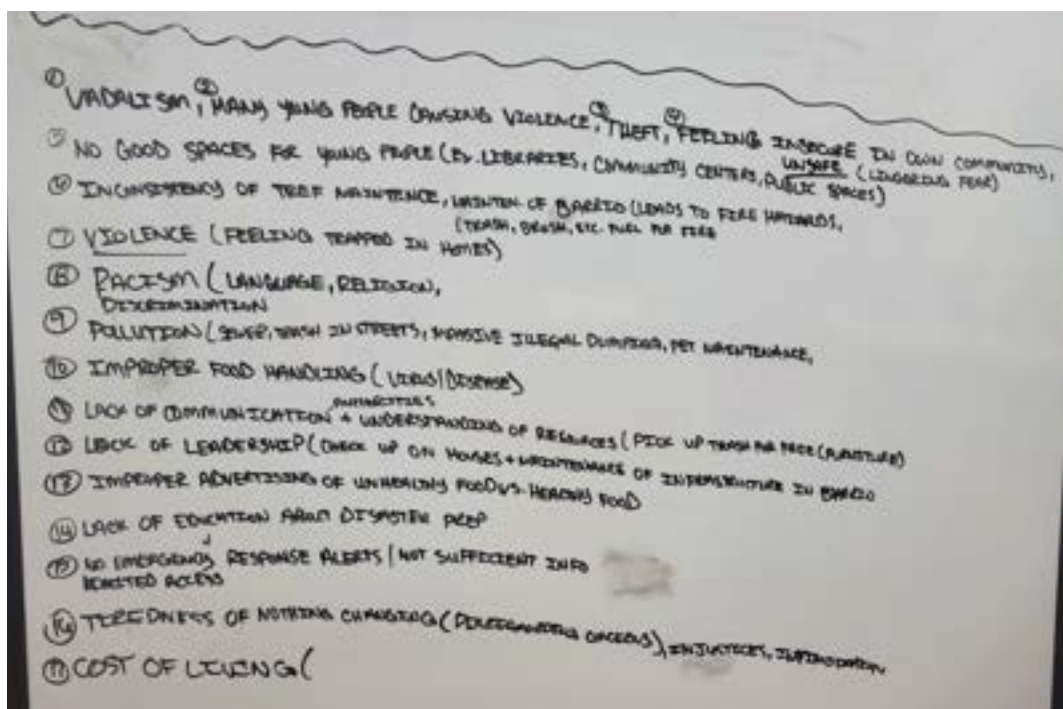 ① VADALISM, ② MANY YOUNG PEOPLE CAUSING VIOLENCE, ③ THEFT, ④ FEELING INSECURE IN OWN COMMUNITY,
UNSAFE (LINGERING FEAR)
⑤ NO GOOD SPACES FOR YOUNG PEOPLE (EX. LIBRARIES, COMMUNITY CENTERS, PUBLIC SPACES)
⑥ INCONSISTENCY OF TREE MAINTENCE, MAINTEN OF BARRIO (LEADS TO FIRE HAZARDS,
(TRASH, BRUSH, ETC. FUEL FOR FIRE
⑦ VIOLENCE (FEELING TRAPPED IN HOMES)
⑧ RACISM (LANGUAGE, RELIGION,
DISCRIMINATION
⑨ POLLUTION (SEWER, TRASH IN STREETS, MASSIVE ILLEGAL DUMPING, PET MAINTENANCE,
⑩ IMPROPER FOOD HANDLING (VIRUS/DISEASE)
AUTHORITIES
⑪ LACK OF COMMUNICATION + UNDERSTANDING OF RESOURCES (PICK UP TRASH FOR FREE (FURNITURE)
⑫ LACK OF LEADERSHIP (CHECK UP ON HOUSES + MAINTENANCE OF INFRASTRUCTURE IN BARRIO
⑬ IMPROPER ADVERTISING OF UNHEALTHY FOOD VS. HEALTHY FOOD
⑭ LACK OF EDUCATION ABOUT DISASTER PREP
⑮ NO EMERGENCY RESPONSE ALERTS / NOT SUFFICIENT INFO
LIMITED ACCESS
⑯ TIREDNESS OF NOTHING CHANGING (DISREGARDING), INJUSTICES, INTIMIDATION
⑰ COST OF LIVING (